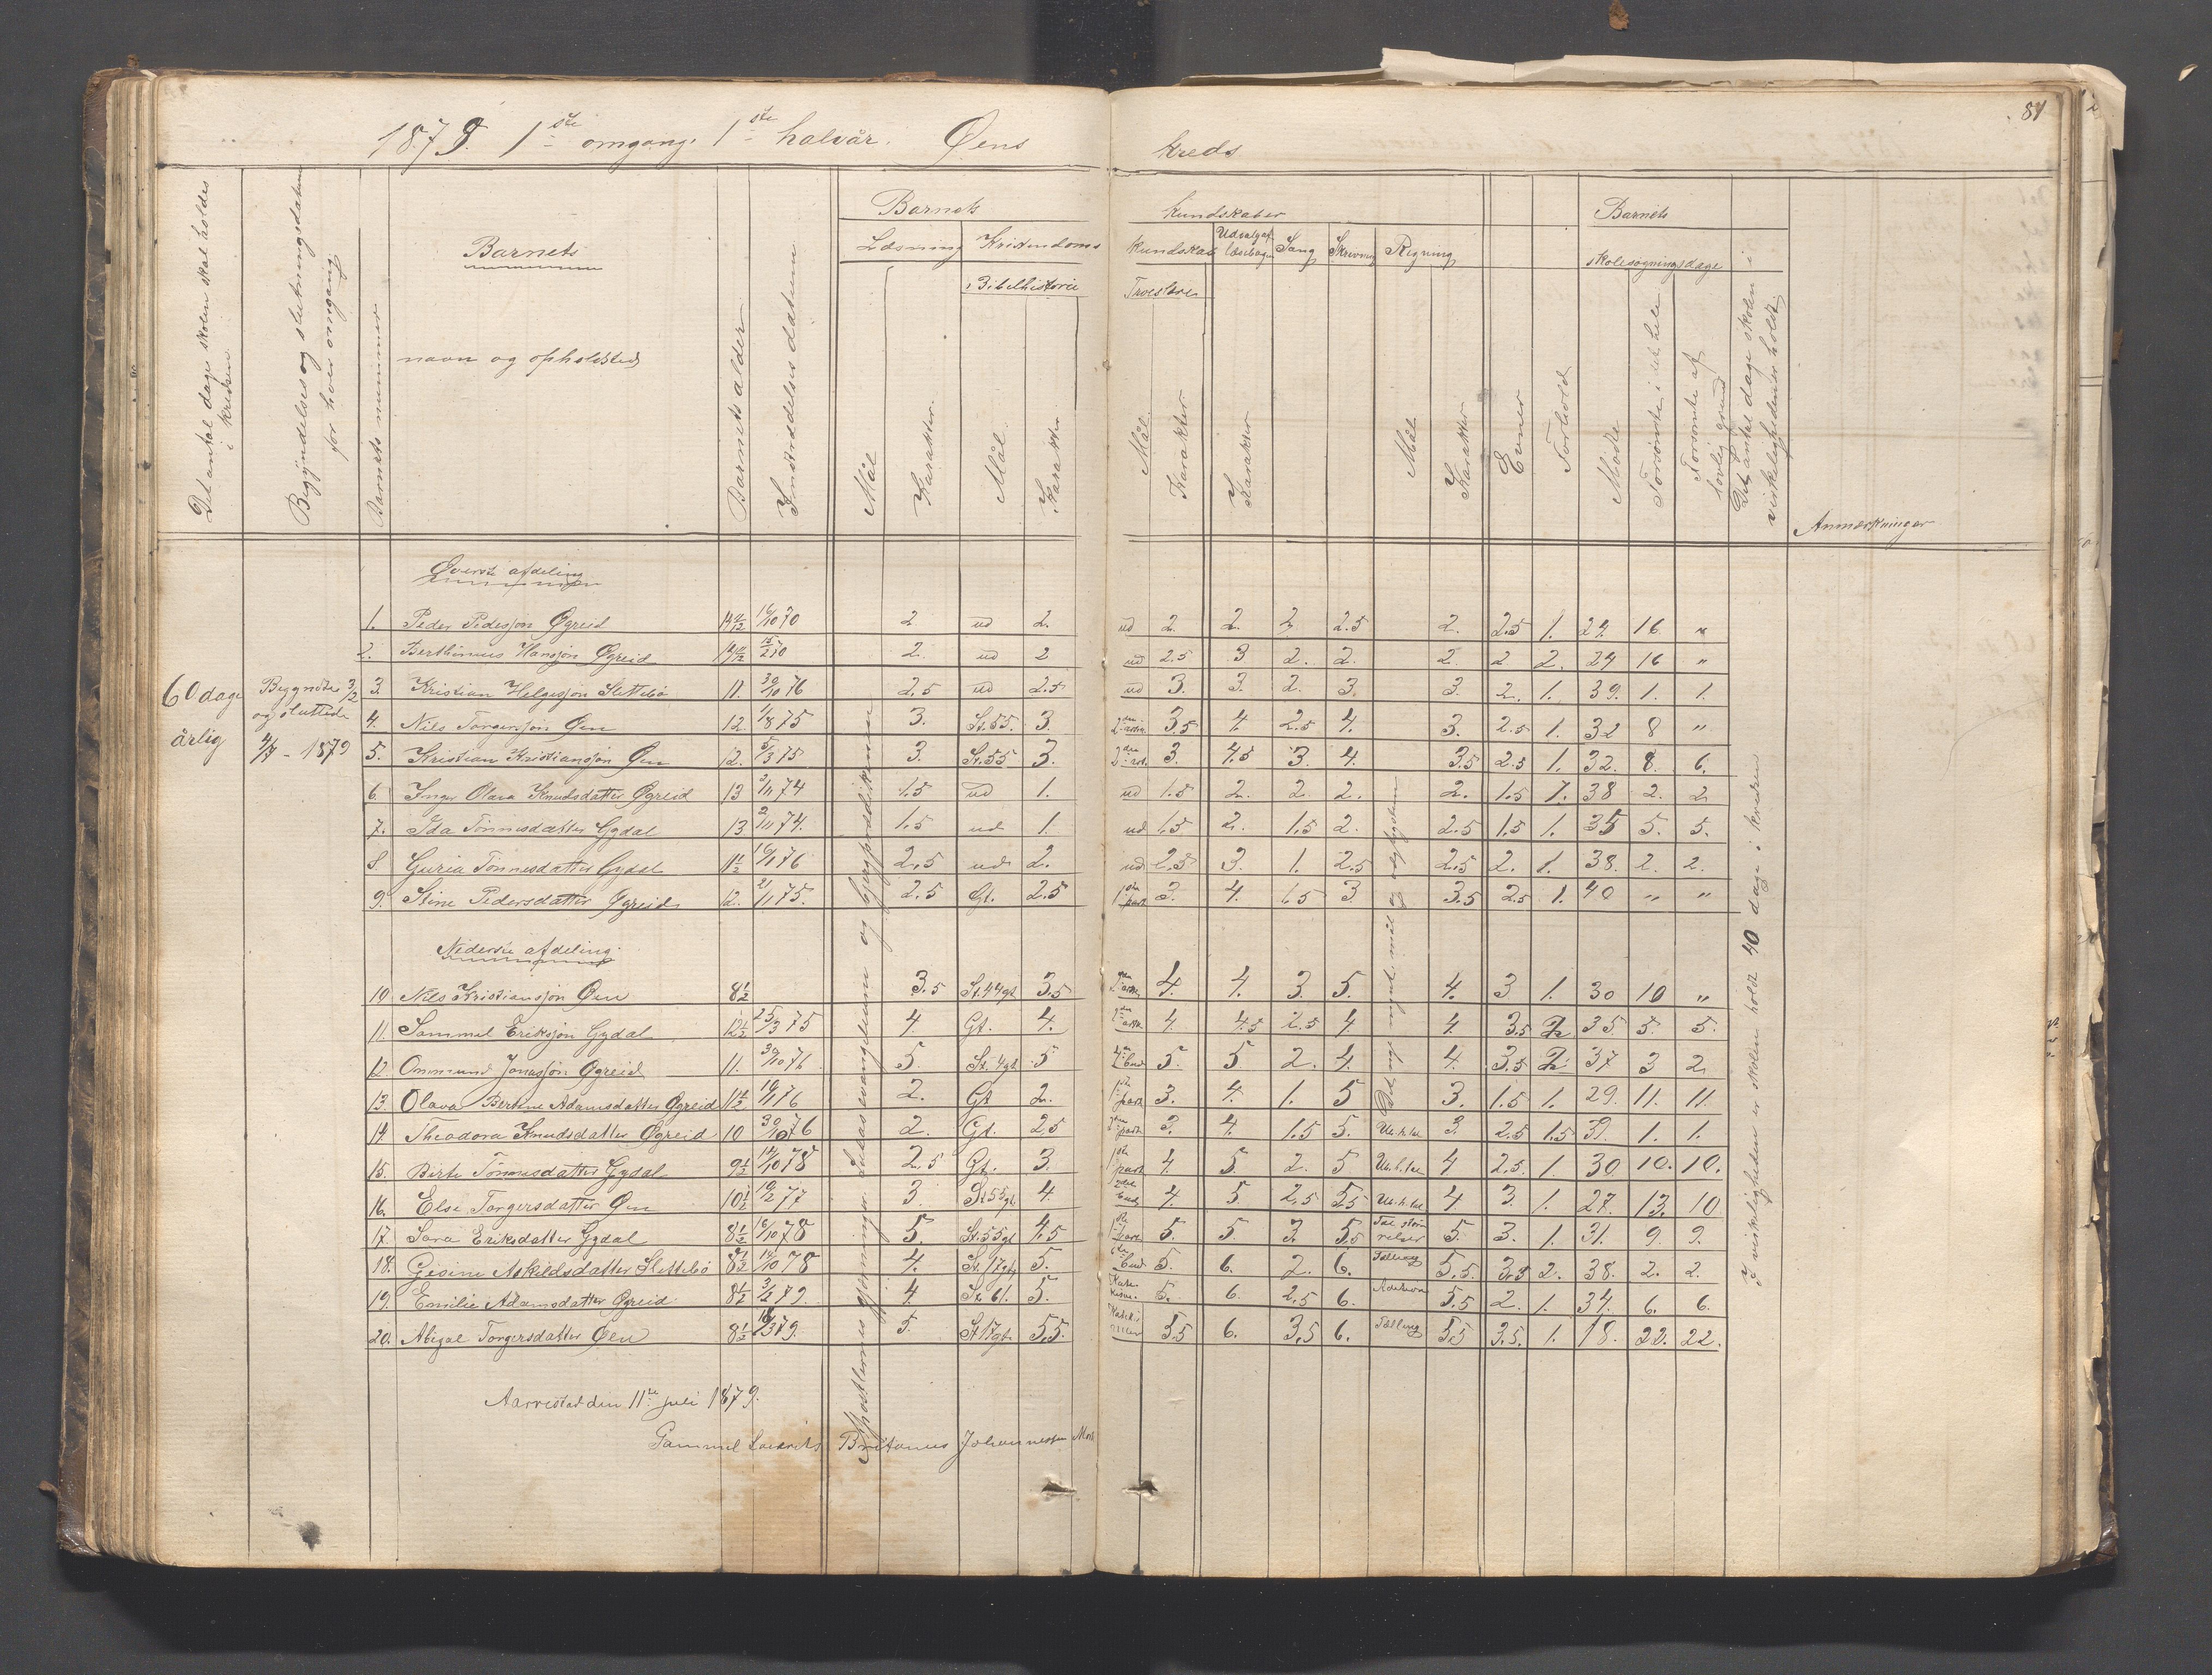 81
1879. 1ste omgang. 1ste halvår. Øens kreds
Det antal dage skolen skal holdes i kredsen
Begyndelses og slutningsdatum for hver omgang
Barnets nummer
Barnets
navn og opholdsted
Barnets alder
Indtrædelses datum
Barnets kundskaber
Læsning
Kristendoms kundskab
Bibelhistorie
Troeslære
Udvalg af læsebogen
Sang
Skrivning
Regning
Mål
Karakter
Mål
Karakter
Mål
Karakter
Karakter
Mål
Karakter
Evner
Forhold
Barnets
skolesøgningsdage
Mødte
Forsømte i det hele
Forsømte af lovlig grund
Det antal dage skolen i virkeligheden er holdt
Anmærkninger
60 dage årlig
Begyndte 3/2 og sluttede 4/7 - 1879
Øverste afdeling
1. Peder Pedersjon Øgreid 16/10 70 2 ud 2. ud 2. 2. 2. 2.5 2. 2.5 1. 24. 16. "
2. Berthinius Hansjon Øgreid 2. ud 2 ud 2.5 3 2. 2. 2. 2 2. 24 16 "
3. Kristian Helgesjon Slettebø 11. 30/10 76 2.5 ud 2.5 ud 3. 3. 2. 3. 3. 2. 1. 39. 1. 1.
4. Nils Torgersjon Øen 12. 1/8 75 3. St. 55. 3. 3.5 4. 2.5 4. 3. 2.5 1. 32 8 "
5. Kristian Kristiansjon Øen 12. 5/3 75 3. St. 55 3. 3. 4.5 3. 4. 3.5 2.5 1. 32. 8. 6.
6. Inger Olava Knudsdatter Øgreid 13 2/11 74 1.5 ud 1. ud 1.5 2. 2. 2. 2. 1.5 1. 38 2. 2
7. Ida Tønnesdatter Gydal 13. 2/11 74. 1.5 ud 1. ud 1.5 2. 1.5 2. 2.5 1.5 1. 35 5. 5.
8. Guria Tønnesdatter Gydal 11½ 16/1 76 2.5 ud 2. ud 2.5 3. 1. 2.5 2.5 2. 1. 38. 2. 2.
9. Stine Pedersdatter Øgreid 12. 21/11 75. 2.5 Gt. 2.5 1ste part 3. 4. 1.5 3 3.5 2.5 1. 40 " "
Nederste afdeling
10. Nils Kristiansjon Øen 8½ 3.5 St. 44 gt 3.5 4. 4. 3. 5. 4. 3 1. 30 10 "
11. Sammel Eriksjon Gydal 12½ 25/3 75 4. Gt. 4. 4. 4.5 1.5 4. 4. 3.5 2. 35 5. 5.
12. Ommund Jonasjon Øgreid 11. 30/10 76 5. St. 4 gt 5 5. 5 2. 4. 4. 3.5 2. 37 3 2
13. Olava Bertine Adamsdatter Øgreid 11½ 16/1 76 2. Gt 2. 1ste part 3. 4. 1. 5 3. 1.5 1. 29. 11. 11.
14. Theodora Knudsdatter Øgreid 10 30/10 76 2. Gt. 2.5 part 3. 4. 1.5 5. 3. 2.5 1.5 39. 1. 1.
15. Birte Tønnesdatter Gydal 9½ 14/10 78 2.5 Gt. 3. 1ste part 4. 5. 2. 5 4 2.5. 1. 30 10. 10.
16. Else Torgersdatter Øen 10½ 19/2 77 3. St 55 gt 4. 4. 5 2.5 5.5 4 3. 1. 27. 13. 10
17. Sara Eriksdatter Gydal 8½ 16/10 78 5. St. 55 gt 4.5 1ste part 5. 5. 3. 5.5 Tal størrelser 5. 3. 1. 31. 9. 9.
18. Gesine Askildsdatter Slettebø 8½ 14/10 78 4. St. 17 gt 5. bud 5. 6. 2. 6. Tælling 5.5. 3.5 2. 38. 2. 2.
19. Emilie Adamsdatter Øgreid 8½ 3/2 79. 4. St. 61. 5. 5. 6. 2.5 6. Adition 5.5 2. 1. 34. 6. 6.
20. Abigal Torgersdatter Øen 8½ 79. 5. St 17 gt. 5.5. 5.5 6. 3.5 6. Tælling 5.5 3.5. 1. 18. 22. 22.
Apostlernes gjerninger. Lukas evangelium og bjergprædikenen
I virkeligheden er skolen holdt 40 dage i kredsen
Aarrestad den 11te juli 1879.
Gammel Laurits Britanus Johannessen